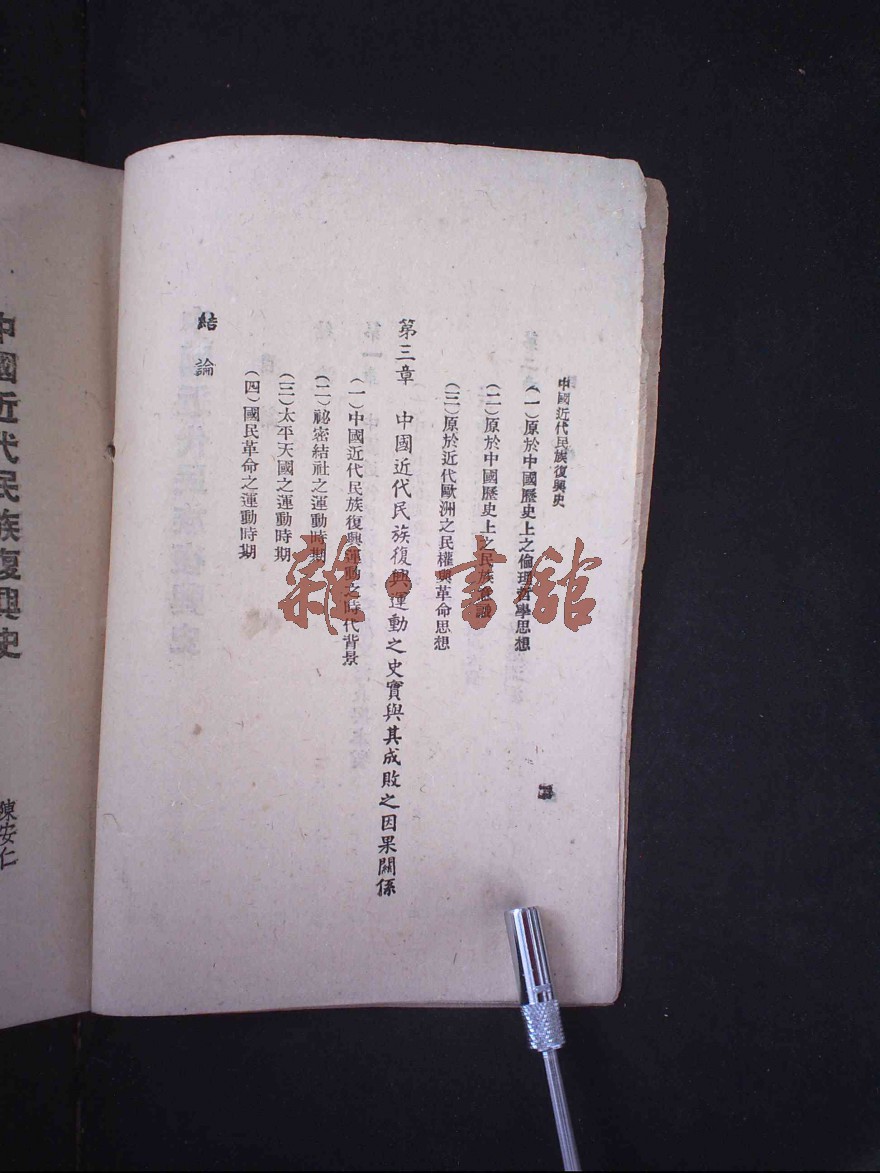 中國近代民族復興史
（一）原於中國歷史上之倫理哲學思想
（二）原於中國歷史上之民族意識
（三）原於近代歐洲之民權與革命思想
第三章　中國近代民族復興運動之史實與其成敗之因果關係
（一）中國近代民族復興運動之時代背景
（二）祕密結社之運動時期
（三）太平天國之運動時期
（四）國民革命之運動時期
結論
中國近代民族復興史
陳安仁
雜·書館